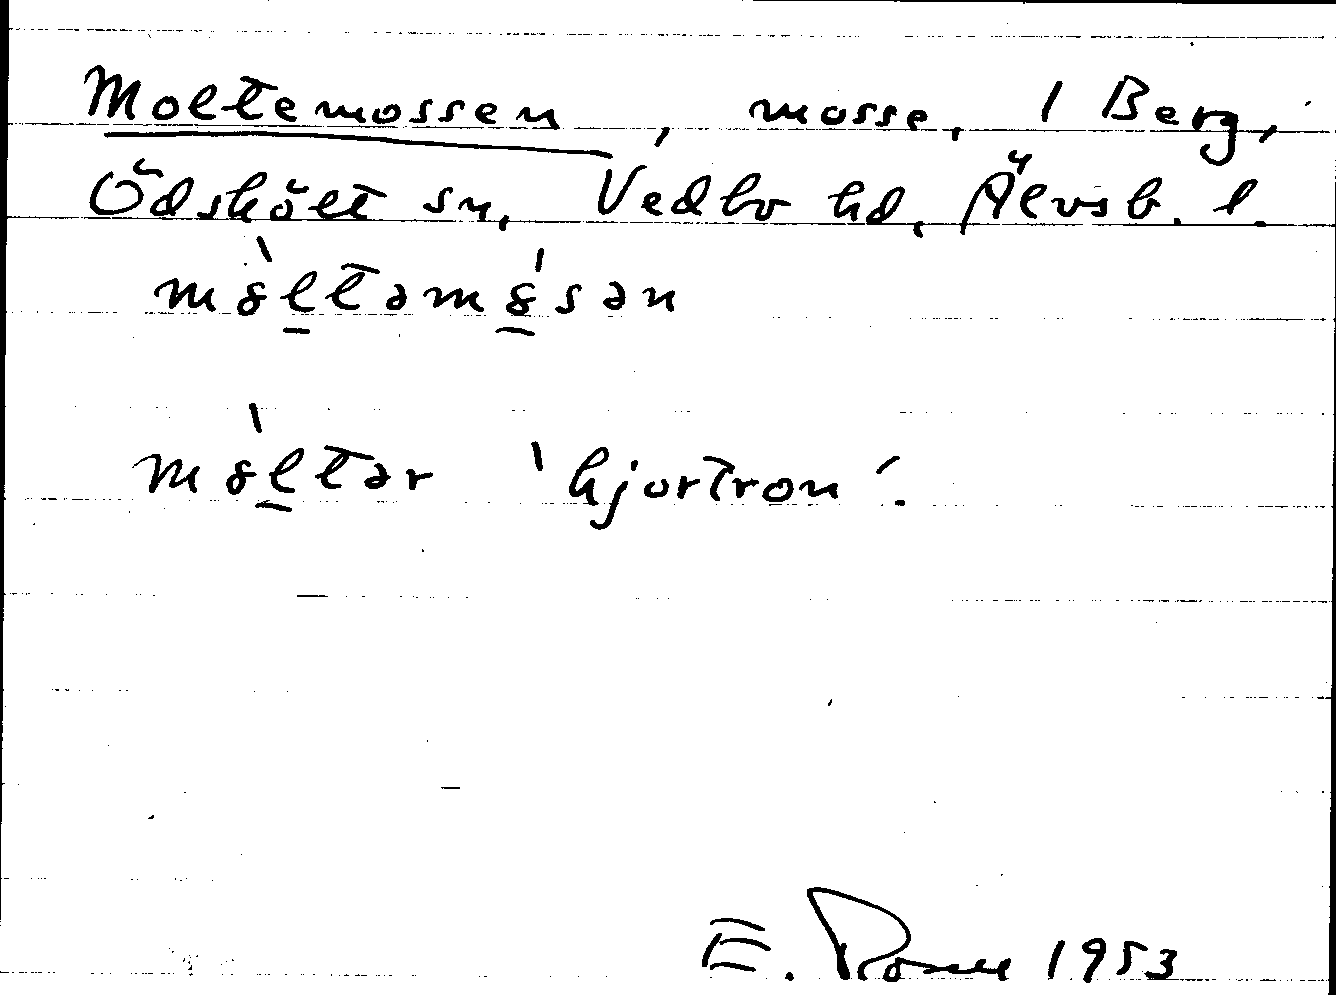 Moltemossen, mosse, 1 Berg,
Ödskölt sn, Vedbo hd, Älvsb. l.
mòltəmósən
mòltər 'hjortron'.
E. 1953